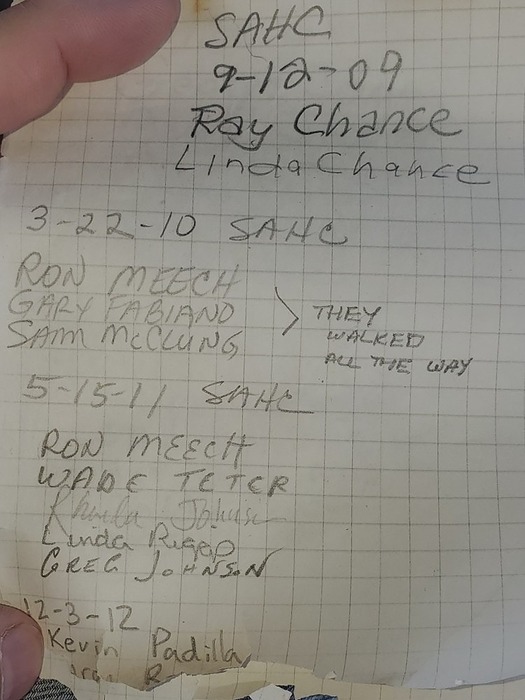 SAHC
9-12-09
Ray Chance
Linda Chance
3-22-10 SAHC
RON MEECH
GARY FABIANO
SAM McCLUNG
THEY
WALKED
ALL THE WAY
5-15-11 SAHC
RON MEECH
WADE TETER
Johnson
Linda
GREG JOHNSON
12-3-12
Kevin Padilla